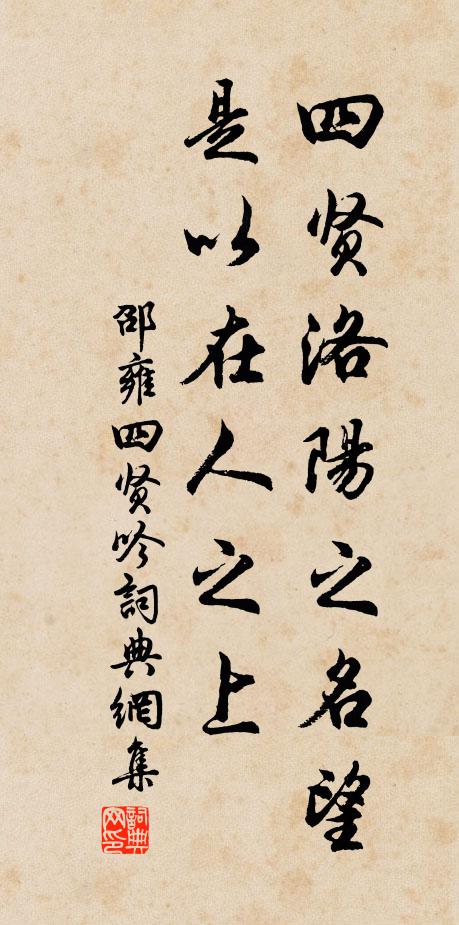 四贤洛陽之名望
是以在人之上
邵雍四贤吟詞典網集
詞典
网印